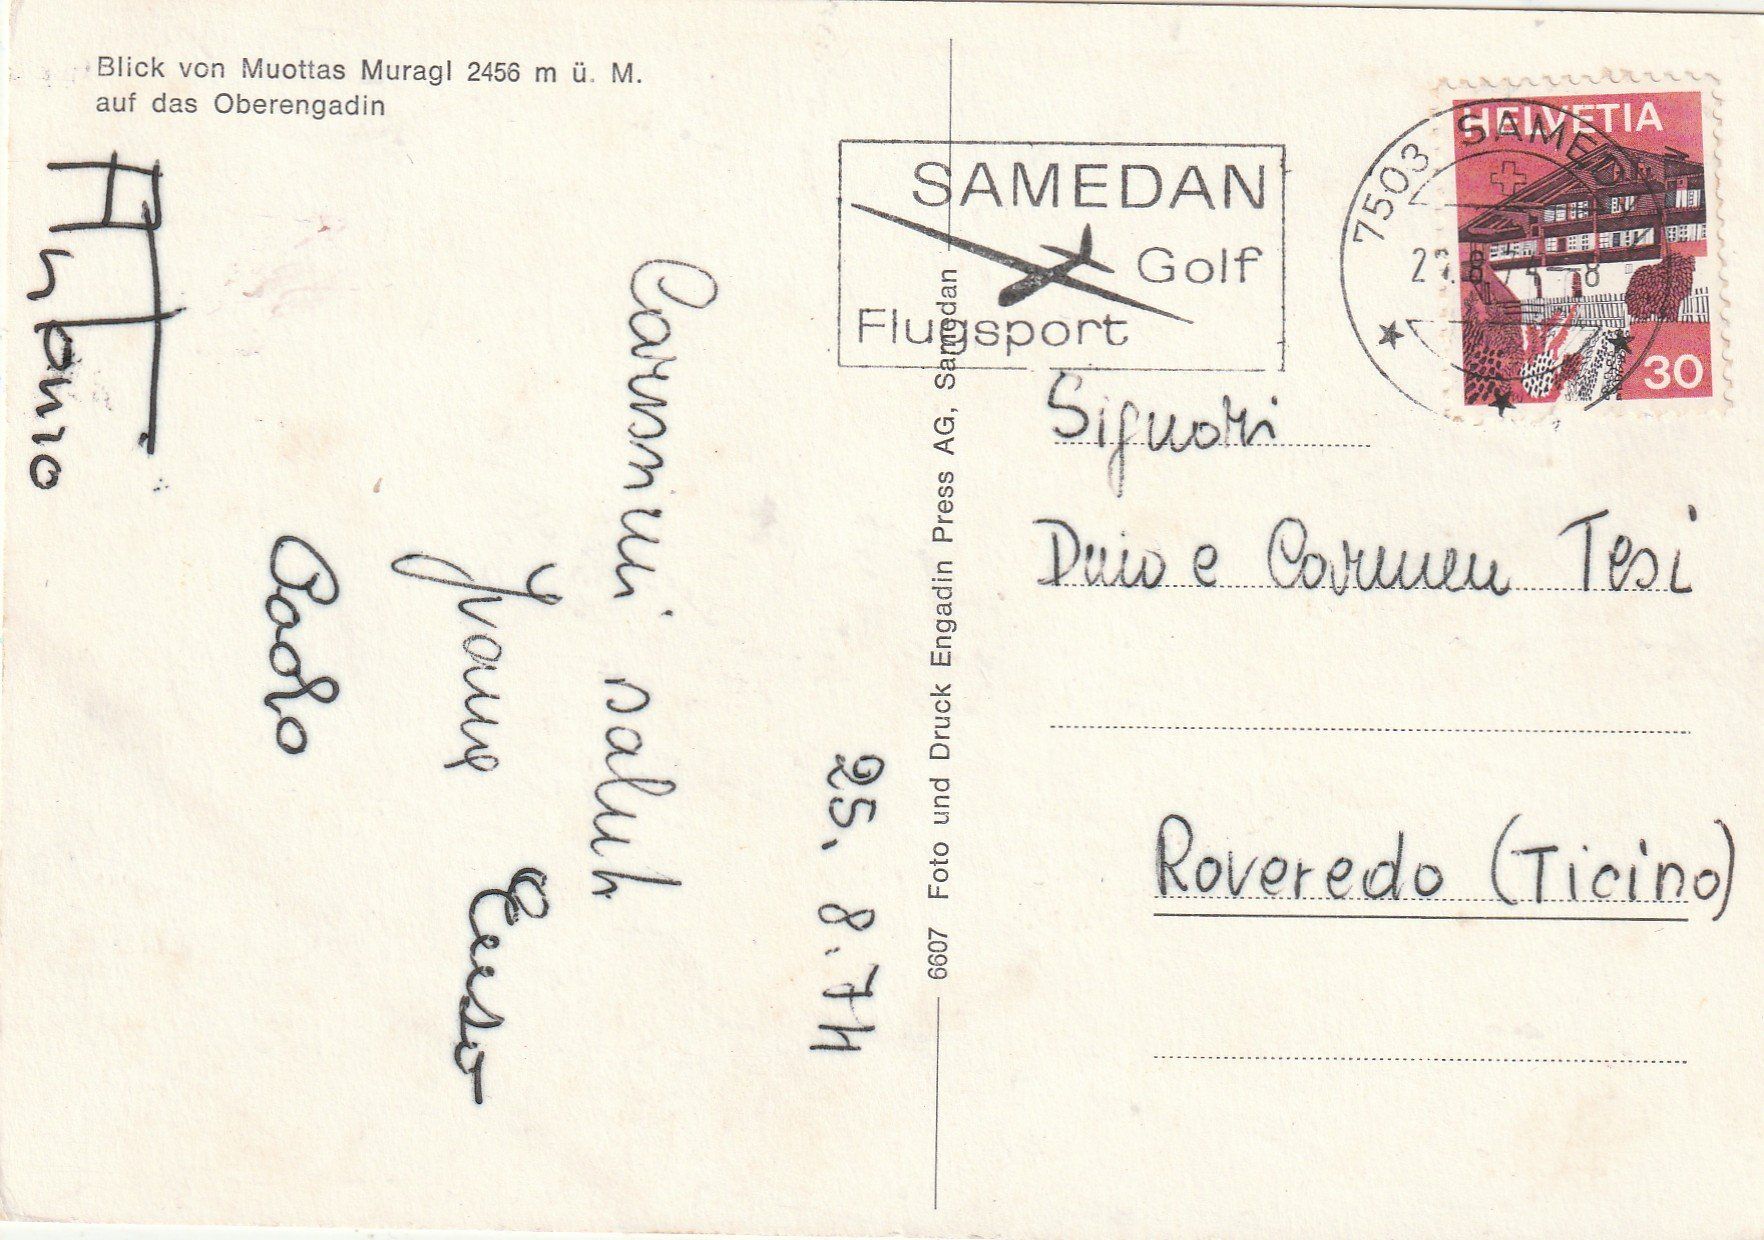 Blick von Muottas Muragl 2456 m ü. M.
auf das Oberengadin
25. 8. 74
Carissimi saluti
Ivana
Enzo
Paolo
Antonio
6607 Foto und Druck Engadin Press AG, Samedan
SAMEDAN
Golf
Flugsport
7503 SAMEDAN
HELVETIA
30
Signori
Dino e Carmen Tesi
Roveredo (Ticino)